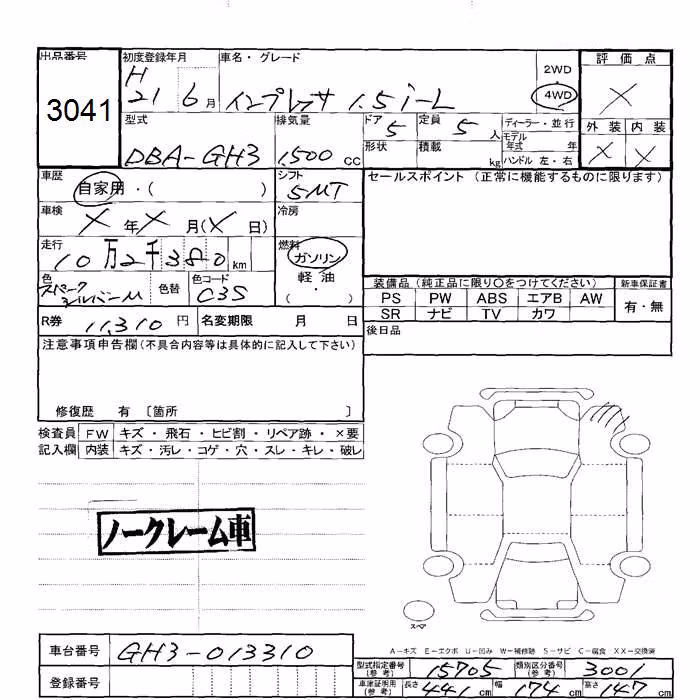 出品番号 初度登録年月 車名・グレード 評価点
3041 H 21 6月 インプレッサ 1.5i-L 2WD 4WD ×
型式 排気量 ドア 定員 ディーラー・並行 外装 内装
DBA-GH3 1,500cc 5 5人 モデル年式 年 × ×
形状 積載 kg ハンドル 左・右
車歴 シフト セールスポイント(正常に機能するものに限ります)
自家用・( ) 5MT
車検 ×年×月(×日) 冷房
走行 燃料
10万2千380km ガソリン
色 色替 色コード 軽・油
スパークシルバーM C3S ( )
装備品(純正品に限り○をつけてください) 新車保証書
PS PW ABS エアB AW 有・無
SR ナビ TV カワ
R券 11,310円 名変期限 月 日
後日品
注意事項申告欄(不具合内容等は具体的に記入して下さい)
修復歴 有 〔箇所 〕
検査員 FW キズ・飛石・ヒビ割・リペア跡・×要
記入欄 内装 キズ・汚レ・コゲ・穴・スレ・キレ・破レ
ノークレーム車
スペア
A-キズ E-エクボ U-凹み W-補修跡 S-サビ C-腐食 XX-交換済
車台番号 GH3-013310
登録番号
型式指定番号(参考) 15705 類別区分番号(参考) 3001
車庫証明用(参考) 長さ 441cm 幅 174cm 高さ 147cm